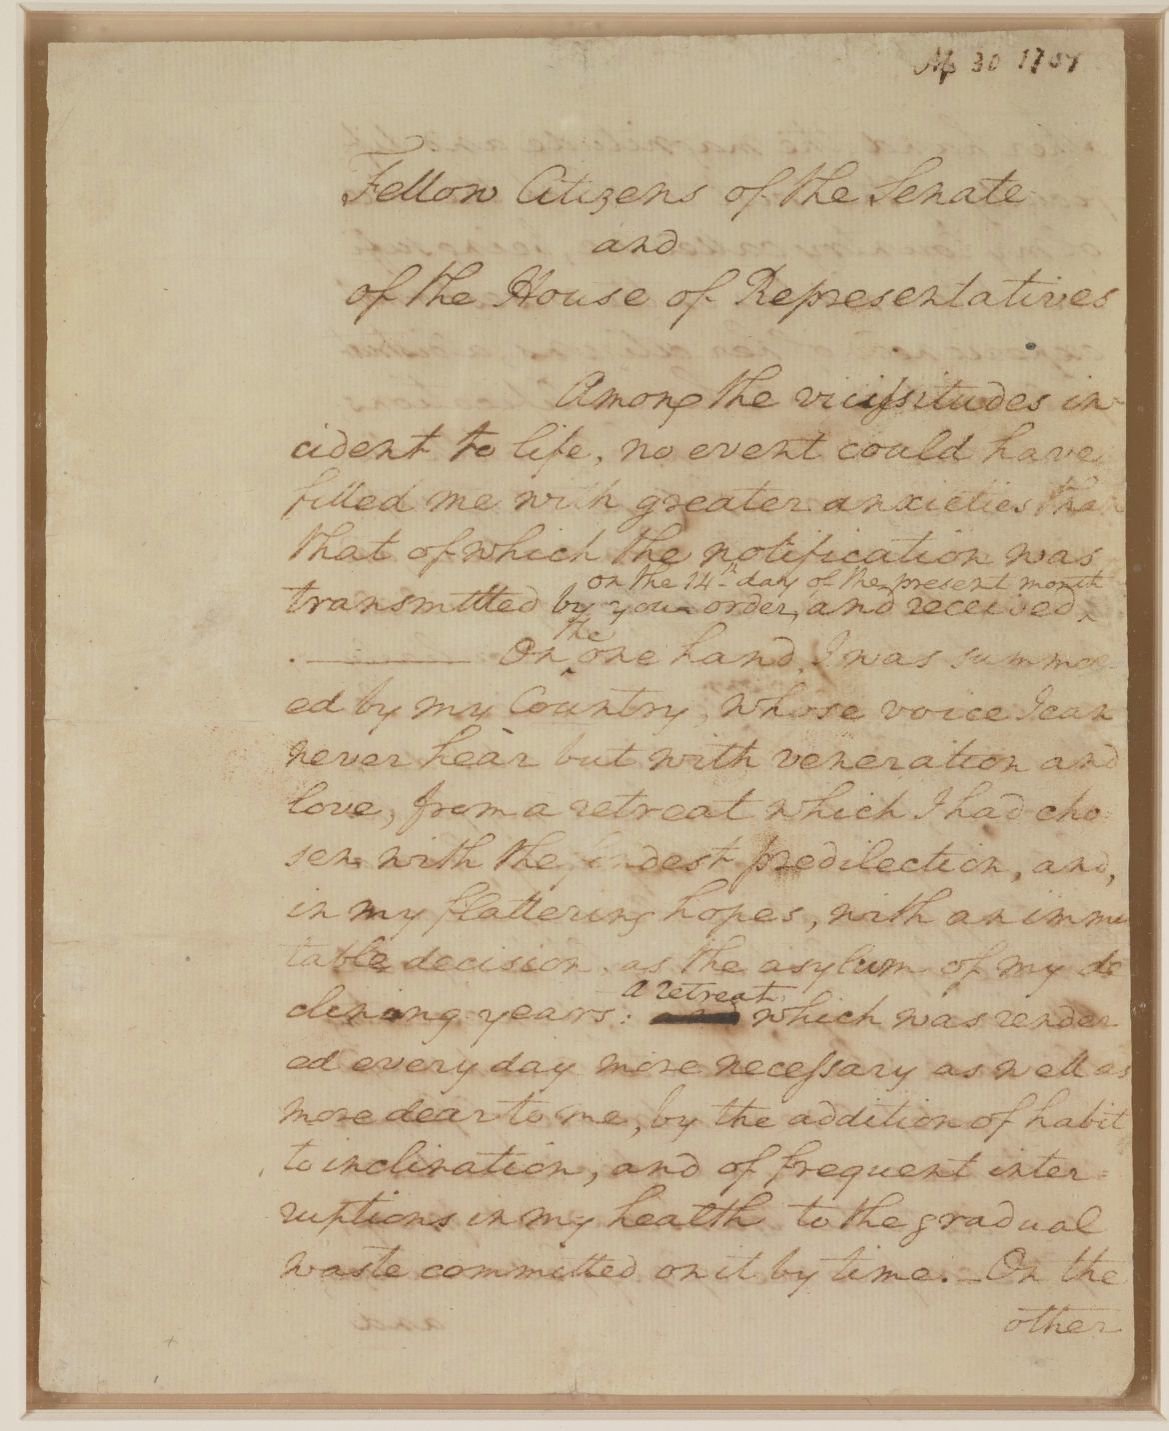 Ap 30 1789
Fellow Citizens of the Senate
and
of the House of Representatives
Among the vicissitudes in-
cident to life, no event could have
filled me with greater anxieties than
that of which the notification was
on the 14th day of the present month
transmitted by your order, and received
the
On one hand, I was summon-
ed by my Country, whose voice I can
never hear but with veneration and
love, from a retreat which I had cho-
sen with the fondest predilection, and,
in my flattering hopes, with an immu
table decision, as the asylum of my de
a retreat
clining years: which was render
ed every day more necessary as well as
more dear to me, by the addition of habit
to inclination, and of frequent inter-
ruptions in my health to the gradual
waste committed on it by time. – On the
other